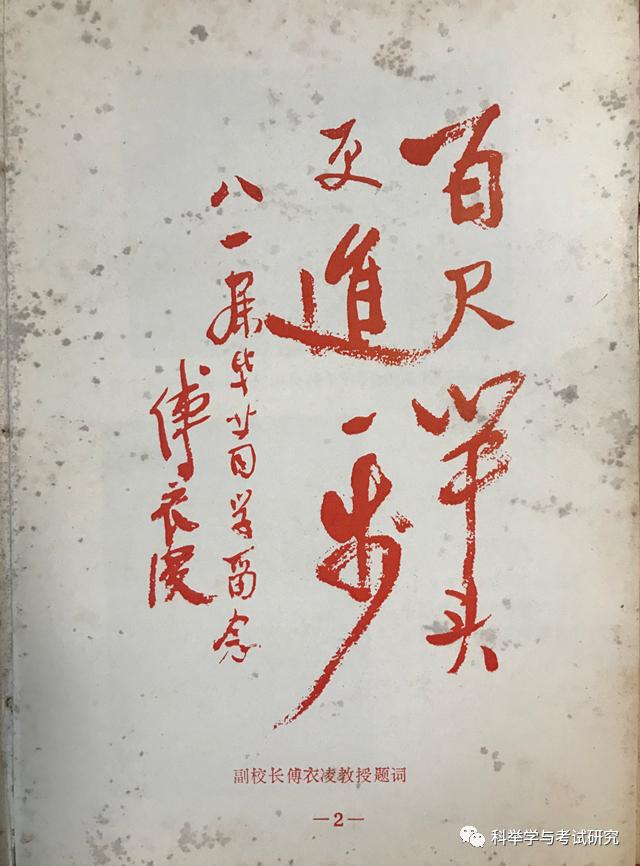 百尺竿头
更进一步
八一届毕业同学留念
傅衣凌
副校长傅衣凌教授题词
—2—
科举学与考试研究